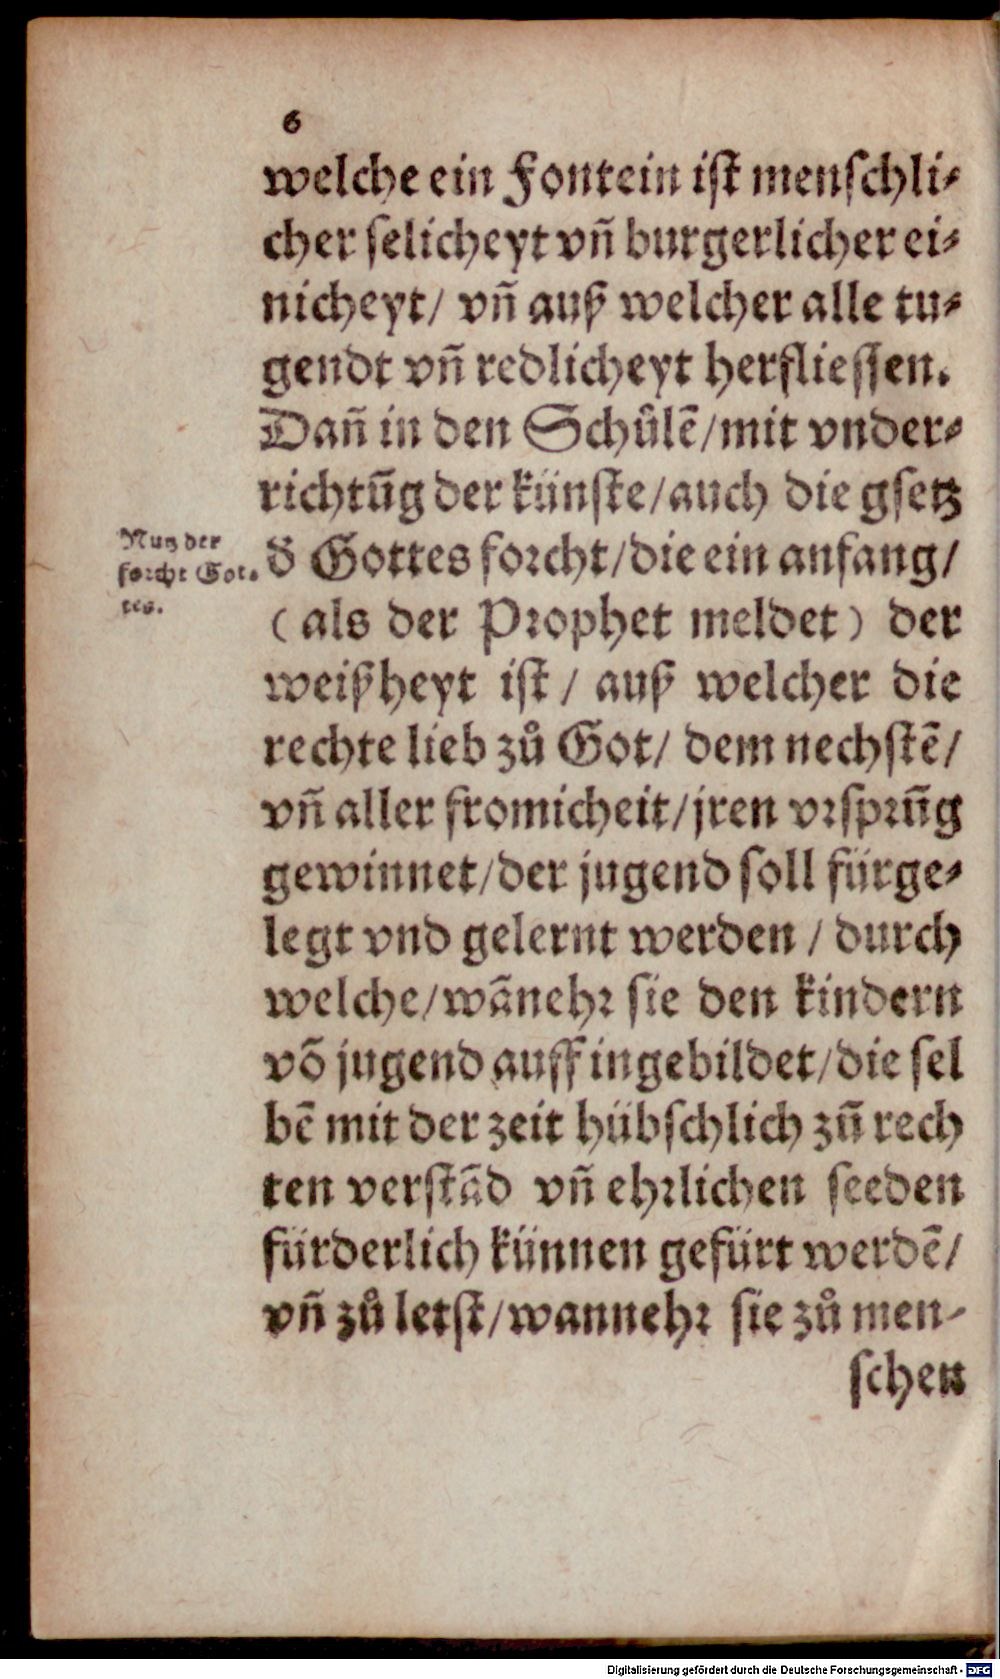 6
welche ein Fontein ist menschli⸗
cher selicheyt vñ burgerlicher ei⸗
nicheyt/ vñ auß welcher alle tu⸗
gendt vñ redlicheyt herfliessen.
Dañ in den Schůlẽ/mit vnder⸗
richtũg der künste/auch die gsetz
Nutz der
forcht Got⸗
tes.
đ Gottes forcht/die ein anfang/
(als der Prophet meldet) der
weißheyt ist/ auß welcher die
rechte lieb zů Got/ dem nechstẽ/
vñ aller fromicheit/jren vrsprũg
gewinnet/der jugend soll fürge⸗
legt vnd gelernt werden/ durch
welche/wãnehr sie den kindern
võ jugend auff ingebildet/die sel
bẽ mit der zeit hübschlich zũ rech
ten verstãd vñ ehrlichen seeden
fürderlich künnen gefürt werdẽ/
vñ zů letst/wannehr sie zů men⸗
schen
Digitalisierung gefördert durch die Deutsche Forschungsgemeinschaft - DFG